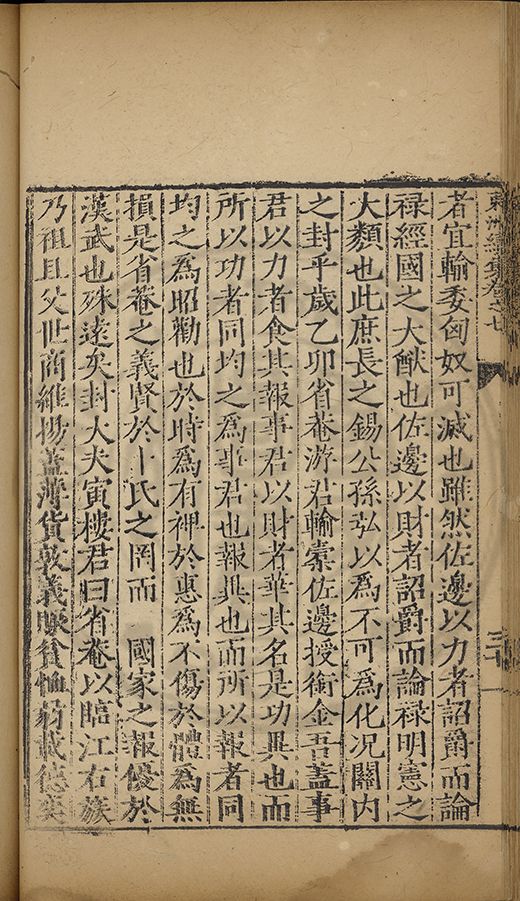 東洲續集卷之七
三十一
者宜輸委匈奴可滅也雖然佐邊以力者詔爵而論
祿經國之大猷也佐邊以財者詔爵而論祿明憲之
大纇也此庶長之錫公孫弘以爲不可爲化况關内
之封乎歲乙卯省菴游君輸粟佐邊授銜金吾葢事
君以力者食其報事君以財者華其名是功異也而
所以功者同均之爲事君也報異也而所以報者同
均之爲昭勸也於時爲有裨於惠爲不傷於體爲無
損是省菴之義賢於卜氏之罔而　國家之報優於
漢武也殊遠矣封大夫寅樓君曰省菴以臨江右族
乃祖且父世商維揚葢薄貨敦義賑貧恤煢載德奕